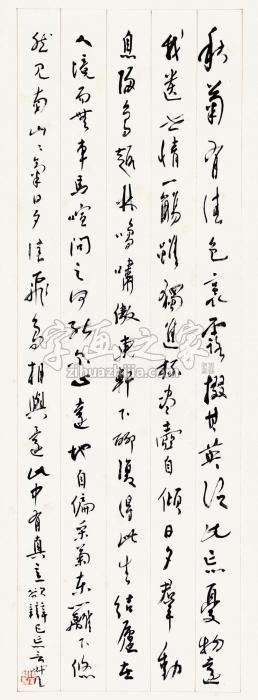 秋菊有佳色裛露掇其英泛此忘憂物遠
我遺世情一觴雖獨進杯盡壺自傾日夕羣動
息歸鳥趨林鳴嘯傲東軒下聊復得此生結廬在
人境而無車馬喧問君何能尔心遠地自偏采菊東籬下悠
然見南山〻氣日夕佳飛鳥相與還此中有真意欲辯已忘言
字画之家
www.zihuazhijia.com